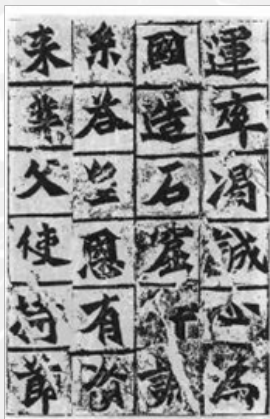 運率渴誠心為
國造石窟
系荅皇恩有資
来業父使持節